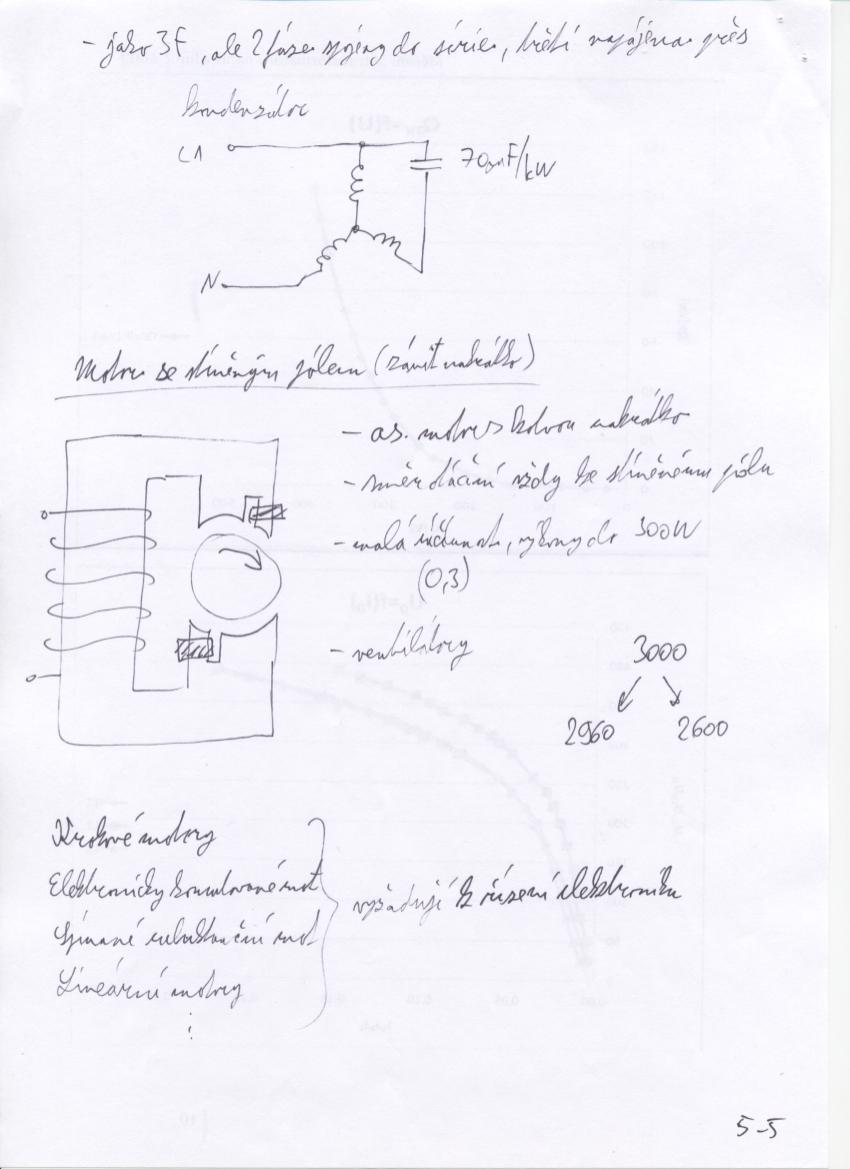 - jako 3f, ale 2 fáze spojeny do série, třetí napájena přes
kondenzátor
L1
70µF/kW
N
Motor se stíněným pólem (závit nakrátko)
- as. motor s kotvou nakrátko
- směr otáčení vždy ke stíněnému pólu
- malá účinnost, výkony do 300W
(0,3)
- ventilátory
3000
2960 2600
Krokové motory
Elektronicky komutované mot
Spínané reluktanční mot
Lineární motory
⋮
vyžadují k řízení elektroniku
5-5